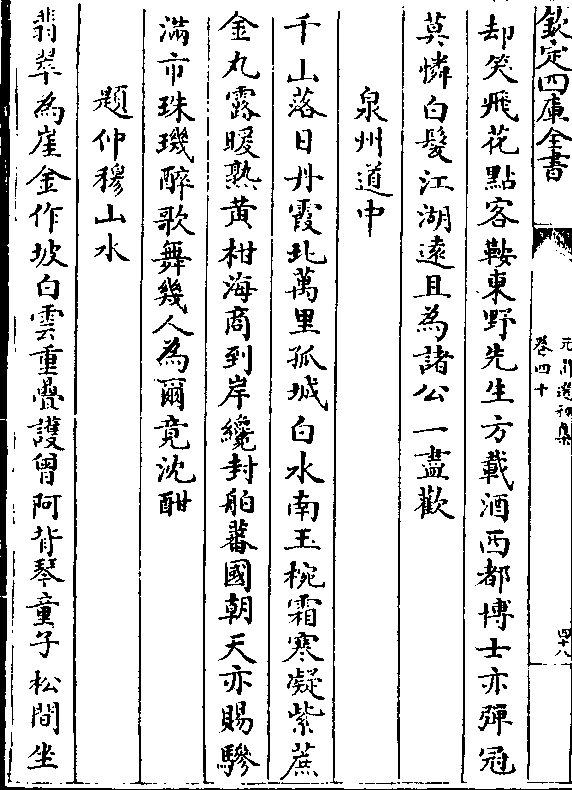 欽定四庫全書
元詩選初集
卷四十
四十八
却笑飛花點客鞍東野先生方載酒西都博士亦彈冠
莫憐白髮江湖遠且為諸公一盡歡
泉州道中
千山落日丹霞北萬里孤城白水南玉椀霜寒凝紫蔗
金丸露暖熟黄柑海商到岸纔封舶蕃國朝天亦賜驂
滿市珠璣醉歌舞幾人為爾竟沈酣
題仲穆山水
翡翠為崖金作坡白雲重疊護曾阿背琴童子松間坐